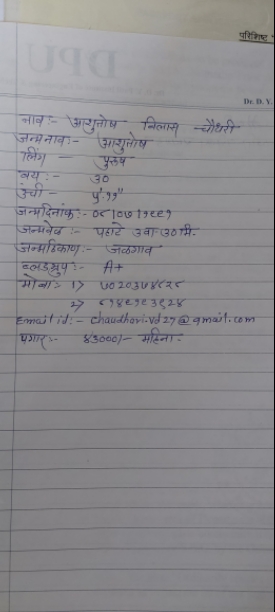 परिशिष्ट
DPU
Dr. D. Y.
नाव :- आशुतोष विलास चौधरी
जन्मनाव :- आशुतोष
लिंग - पुरुष
वय :- ३०
उंची - ५'.११"
जन्मदिनांक :- ०८/०७/१९९१
जन्मवेळ :- पहाटे ३वा. ३०मि.
जन्मठिकाण :- जळगाव
ब्लडग्रुप :- A+
मोबा :- 1)
2)
Email id :- chaudhari.vd27@gmail.com
पगार :- ४३०००/- महिना.